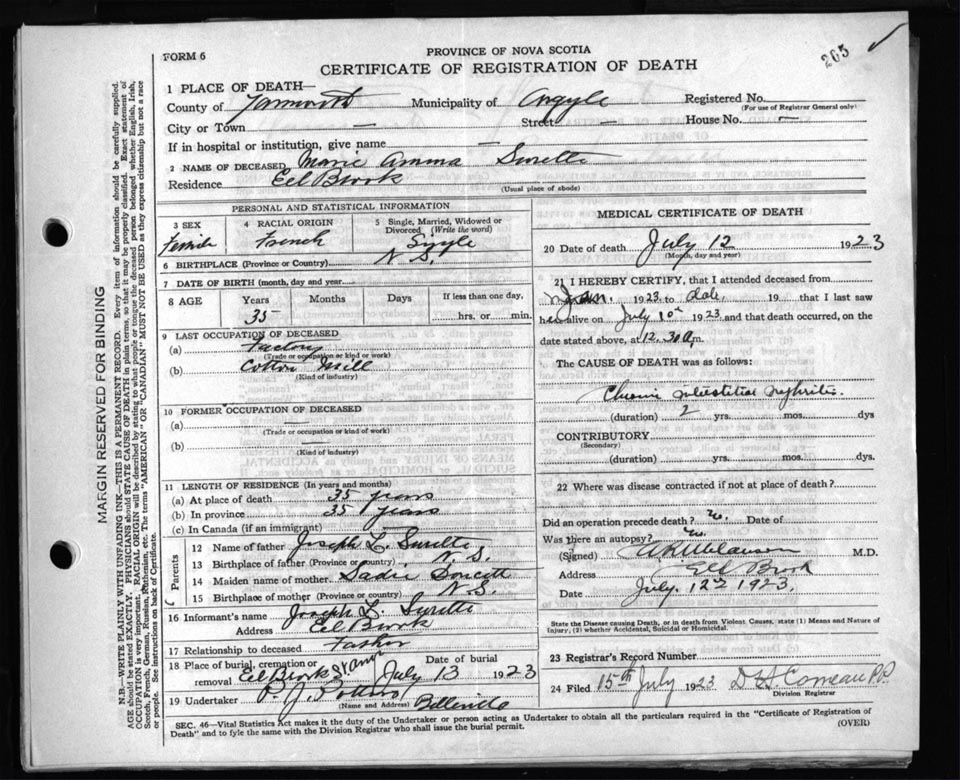 265
FORM 6
PROVINCE OF NOVA SCOTIA
CERTIFICATE OF REGISTRATION OF DEATH
1 PLACE OF DEATH—
County of Yarmouth Municipality of Argyle Registered No.
(For use of Registrar General only)
City or Town — Street — House No. —
If in hospital or institution, give name —
2 NAME OF DECEASED Marie Amma Surette
Residence Eel Brook
(Usual place of abode)
PERSONAL AND STATISTICAL INFORMATION
3 SEX 4 RACIAL ORIGIN 5 Single, Married, Widowed or Divorced (Write the word)
Female French Single
6 BIRTHPLACE (Province or Country) N S.
7 DATE OF BIRTH (month, day and year)
8 AGE Years Months Days If less than one day,
35 hrs. or min.
9 LAST OCCUPATION OF DECEASED
(a) Factory
(Trade or occupation or kind of work)
(b) Cotton Mill
(Kind of industry)
10 FORMER OCCUPATION OF DECEASED
(a) —
(Trade or occupation or kind of work)
(b) —
(Kind of industry)
11 LENGTH OF RESIDENCE (In years and months)
(a) At place of death 35 years
(b) In province 35 years
(c) In Canada (if an immigrant)
Parents
12 Name of father Joseph L. Surette
13 Birthplace of father (Province or country) N. S.
14 Maiden name of mother Sadie Doucett
15 Birthplace of mother (Province or country) N.S.
16 Informant's name Joseph L. Surette
Address Eel Brook
17 Relationship to deceased Father
18 Place of burial, cremation or removal Eel Brook Date of burial July 13 1923
19 Undertaker P. J.
(Name and Address)
MEDICAL CERTIFICATE OF DEATH
20 Date of death July 12 1923
(Month, day and year)
21 I HEREBY CERTIFY, that I attended deceased from
Jan. 1923 to date, 19 that I last saw
her alive on July 10th 1923, and that death occurred, on
date stated above, at 12.30 a.m.
The CAUSE OF DEATH was as follows:
Chronic interstitial nephritis.
(duration) 2 yrs. mos. dys
CONTRIBUTORY
(Secondary)
(duration) yrs. mos. dys.
22 Where was disease contracted if not at place of death?
Did an operation precede death? no. Date of
Was there an autopsy? no.
(Signed) M.D.
Address Eel Brook
Date July. 12th 1923.
State the Disease causing Death, or in death from Violent Causes, state (1) Means and Nature of
Injury, (2) whether Accidental, Suicidal or Homicidal.
23 Registrar's Record Number
24 Filed 15th July 1923 D H Comeau P.P.
Division Registrar
SEC. 46—Vital Statistics Act makes it the duty of the Undertaker or person acting as Undertaker to obtain all the particulars required in the "Certificate of Registration of
Death" and to fyle the same with the Division Registrar who shall issue the burial permit. (OVER)
MARGIN RESERVED FOR BINDING
N.B.—WRITE PLAINLY WITH UNFADING INK—THIS IS A PERMANENT RECORD. Every item of information should be carefully supplied.
AGE should be stated EXACTLY. PHYSICIANS should STATE CAUSE OF DEATH in plain terms, so that it may be properly classified. Exact statement of
OCCUPATION is very important. RACIAL ORIGIN will be described by stating to what people or tongue the deceased person belonged whether English, Irish,
Scotch, French, German, Russian, Ruthenian, etc. The terms "AMERICAN" or "CANADIAN" MUST NOT BE USED as they express citizenship but not a race
or people. See instructions on back of Certificate.